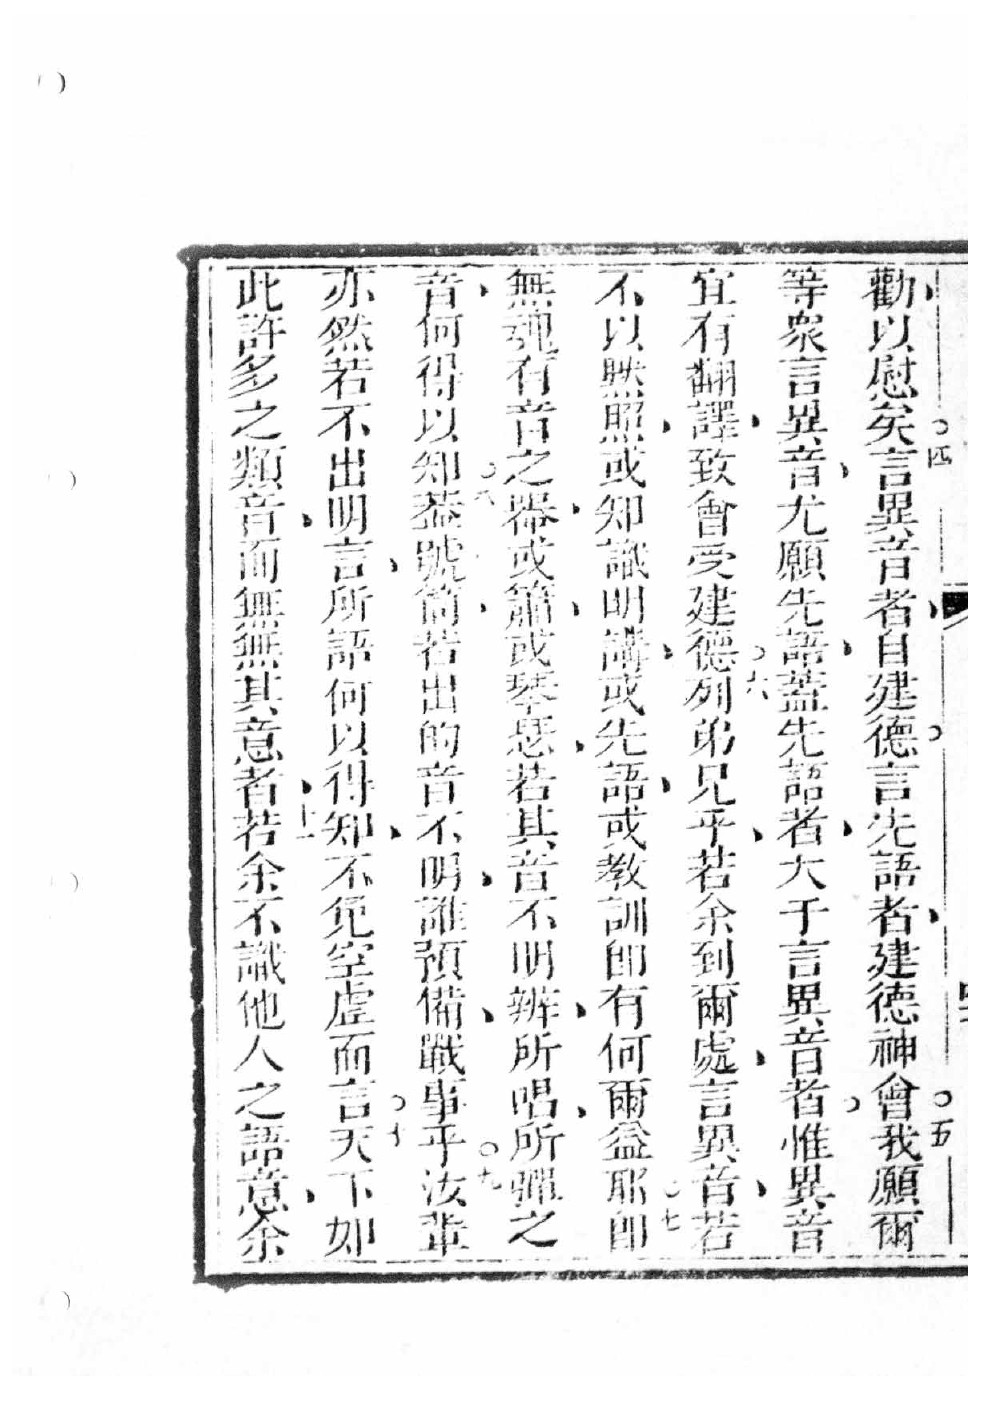 勸以慰矣○四言異音者自建德言先語者建德神會○五我願爾
等衆言異音尤願先語蓋先語者大于言異音者惟異音
宜有翻譯致會受建德○六列弟兄乎若余到爾處言異音若
不以默照或知識明講或先語或教訓即有何爾益耶○七即
無魂有音之器或簫或琴瑟若其音不明辨所唱所彈之
音何得以知○八蓋號筒若出的音不明誰預備戰事乎○九汝輩
亦然若不出明言所語何以得知不免空虛而言○十天下如
此許多之類音而無無其意者十一若余不識他人之語意余